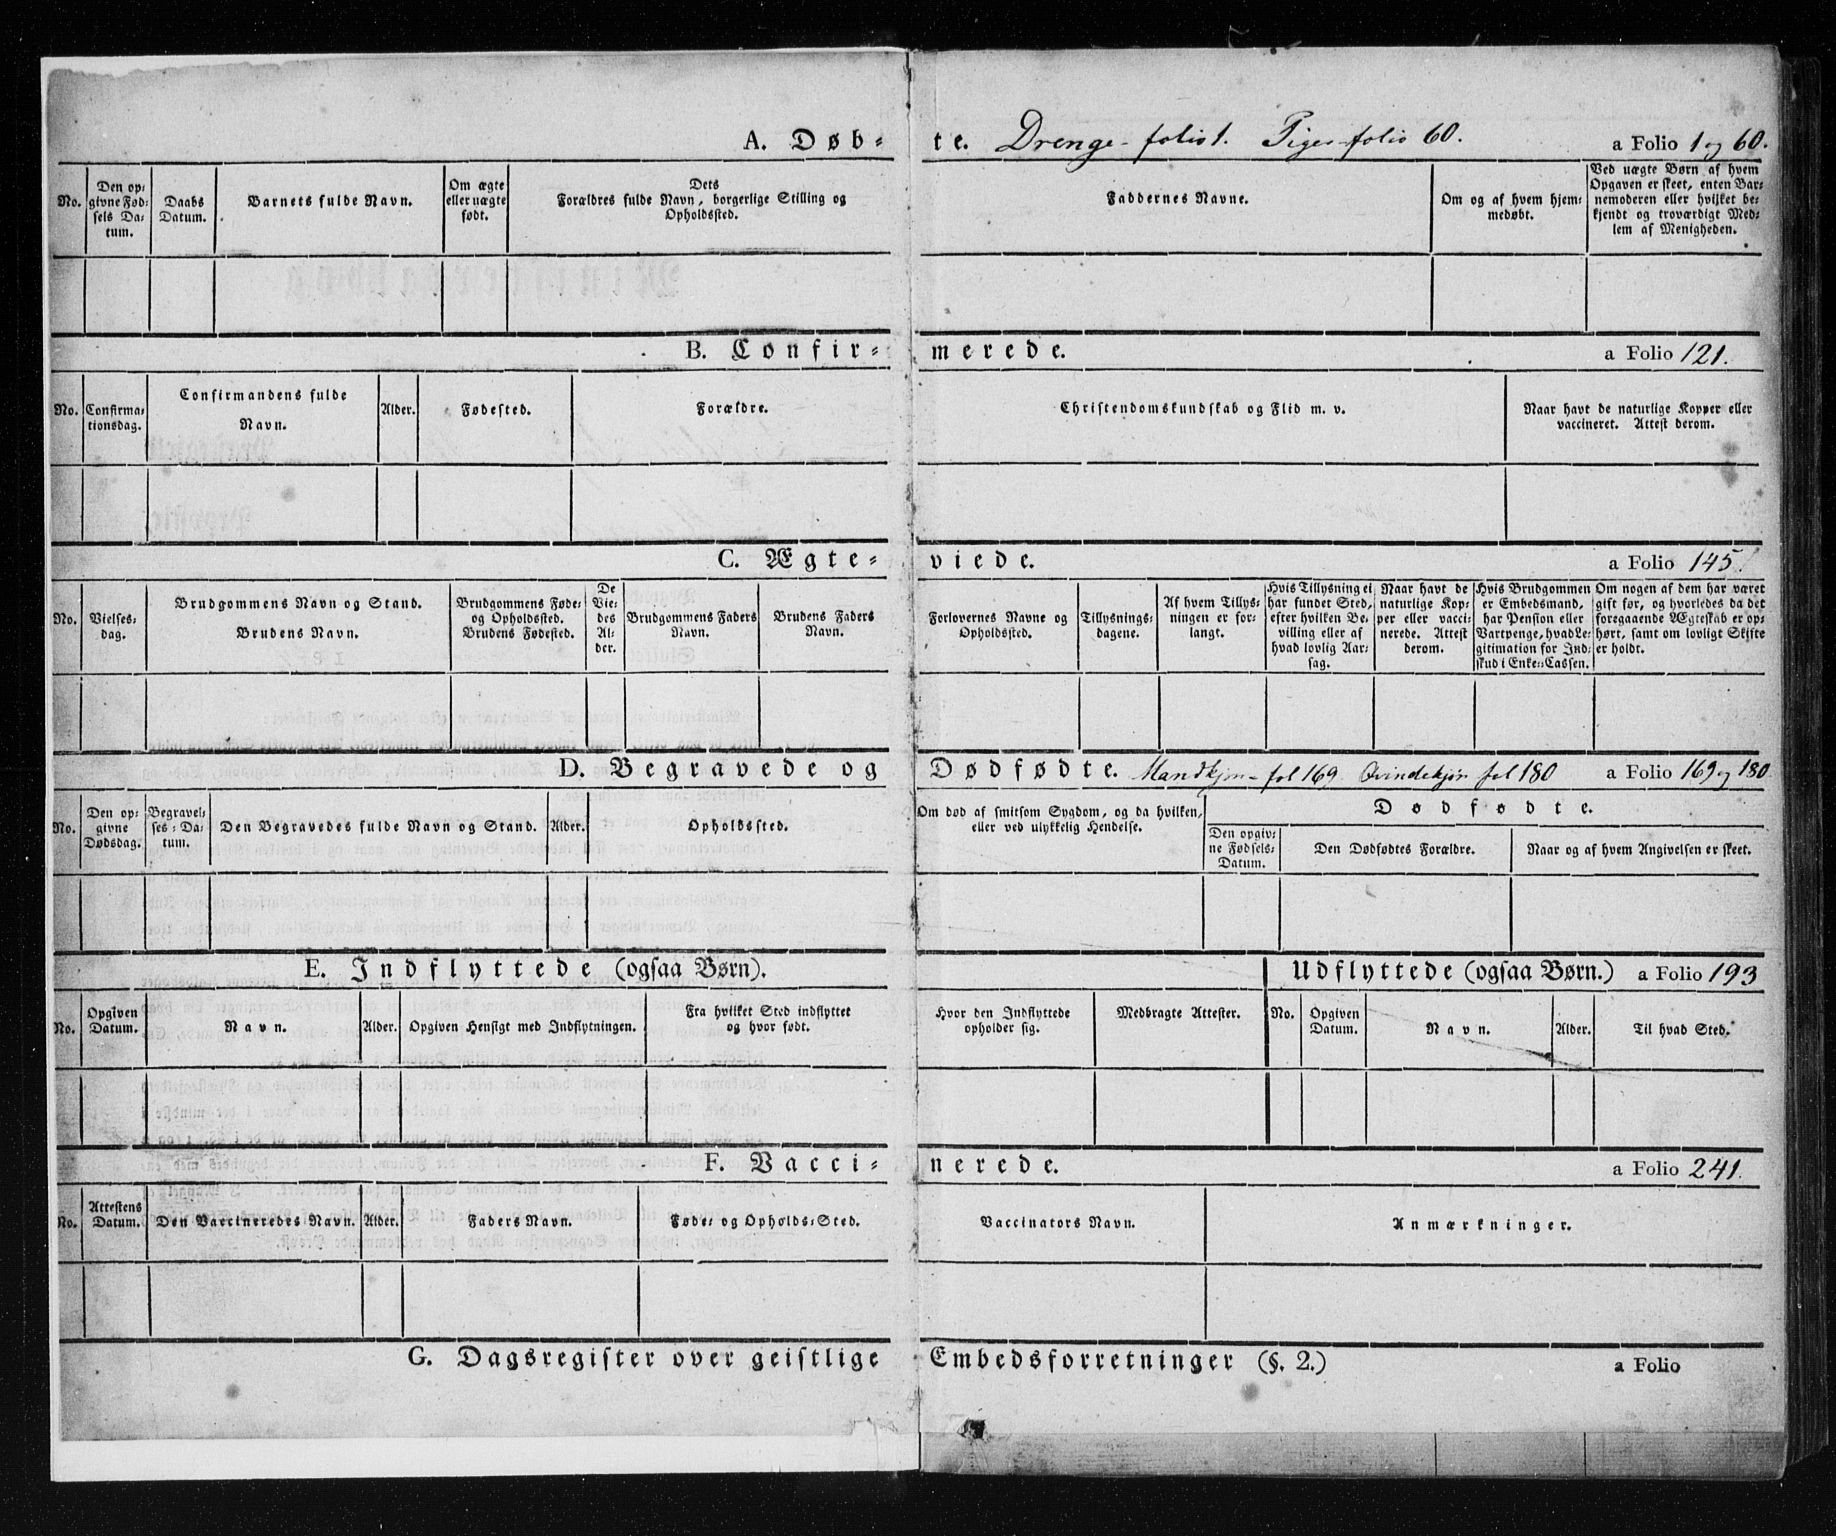 A. Døb- te. Drenge- folio 1. Pige- folio 60. a Folio 1 og 60.
No.
Den op-
givne Fød-
sels Da-
tum.
Daabs
Datum.
Barnets fulde Navn.
Om ægte
eller uægte
født.
Dets
Forældres fulde Navn, borgerlige Stilling og
Opholdssted.
Faddernes Navne.
Om og af hvem hjem-
medøbt.
Ved uægte Børn af hvem
Opgaven er skeet, enten Bar-
nemoderen eller hvilket be-
kjendt og troværdigt Med-
lem af Menigheden.
B. Confir- merede. a Folio 121.
No.
Confirma-
tionsdag.
Confirmandens fulde
Navn.
Alder.
Fødested.
Forældre.
Christendomskundskab og Flid m. v.
Naar havt de naturlige Kopper eller
vaccineret. Attest derom.
C. Ægte- viede. a Folio 145.
No.
Vielses-
dag.
Brudgommens Navn og Stand.
Brudens Navn.
Brudgommens Føde-
og Opholdssted.
Brudens Fødested.
De
Vie-
des
Al-
der.
Brudgommens Faders
Navn.
Brudens Faders
Navn.
Forlovernes Navne og
Opholdssted.
Tillysnings-
dagene.
Af hvem Tillys-
ningen er for-
langt.
Hvis Tillysning ei
har fundet Sted,
efter hvilken Be-
villing eller af
hvad lovlig Aar-
sag.
Naar havt de
naturlige Kop-
per eller vacci-
nerede. Attest
derom.
Hvis Brudgommen
er Embedsmand,
har Pension eller
Vartpenge, hvad Le-
gitimation for Ind-
skud i Enke-Cassen.
Om nogen af dem har været
gift før, og hvorledes da det
foregaaende Ægteskab er op-
hørt, samt om lovligt Skifte
er holdt.
D. Begravede og Dødfødte. Mandkjøn- fol 169. Qvindekjøn fol 180 a Folio 169 og 180
No.
Den op-
givne
Dødsdag.
Begravel-
ses-Da-
tum.
Den Begravedes fulde Navn og Stand.
Alder.
Opholdssted.
Om død af smitsom Sygdom, og da hvilken,
eller ved ulykkelig Hendelse.
Dødfødte.
Den opgiv-
ne Fødsels-
Datum.
Den Dødfødtes Forældre.
Naar og af hvem Angivelsen er skeet.
E. Indflyttede (ogsaa Børn). Udflyttede (ogsaa Børn.) a Folio 193
No.
Opgiven
Datum.
Navn.
Alder.
Opgiven Hensigt med Indflytningen.
Fra hvilket Sted indflyttet
og hvor født.
Hvor den Indflyttede
opholder sig.
Medbragte Attester.
No.
Opgiven
Datum.
Navn.
Alder.
Til hvad Sted.
F. Vacci- nerede. a Folio 241.
No.
Attestens
Datum.
Den Vaccineredes Navn.
Alder.
Faders Navn.
Føde- og Opholds-Sted.
Vaccinators Navn.
Anmærkninger.
G. Dagsregister over geistlige Embedsforretninger (§. 2.) a Folio